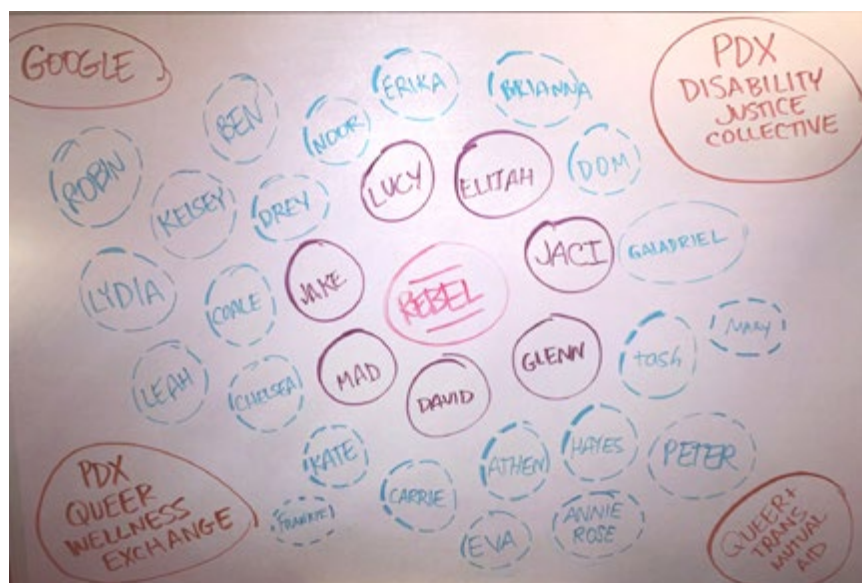 GOOGLE
PDX
DISABILITY
JUSTICE
COLLECTIVE
ERIKA
BRIANNA
BEN
NOOR
ROBIN
KELSEY
DREY
LUCY
ELIJAH
DOM
LYDIA
COALE
JAKE
REBEL
JACI
GALADRIEL
LEAH
CHELSEA
MAD
DAVID
GLENN
tash
MARY
KATE
CARRIE
ATHEN
HAYES
PETER
PDX
QUEER
WELLNESS
EXCHANGE
FRANKIE
EVA
ANNIE
ROSE
QUEER+
TRANS
MUTUAL
AID